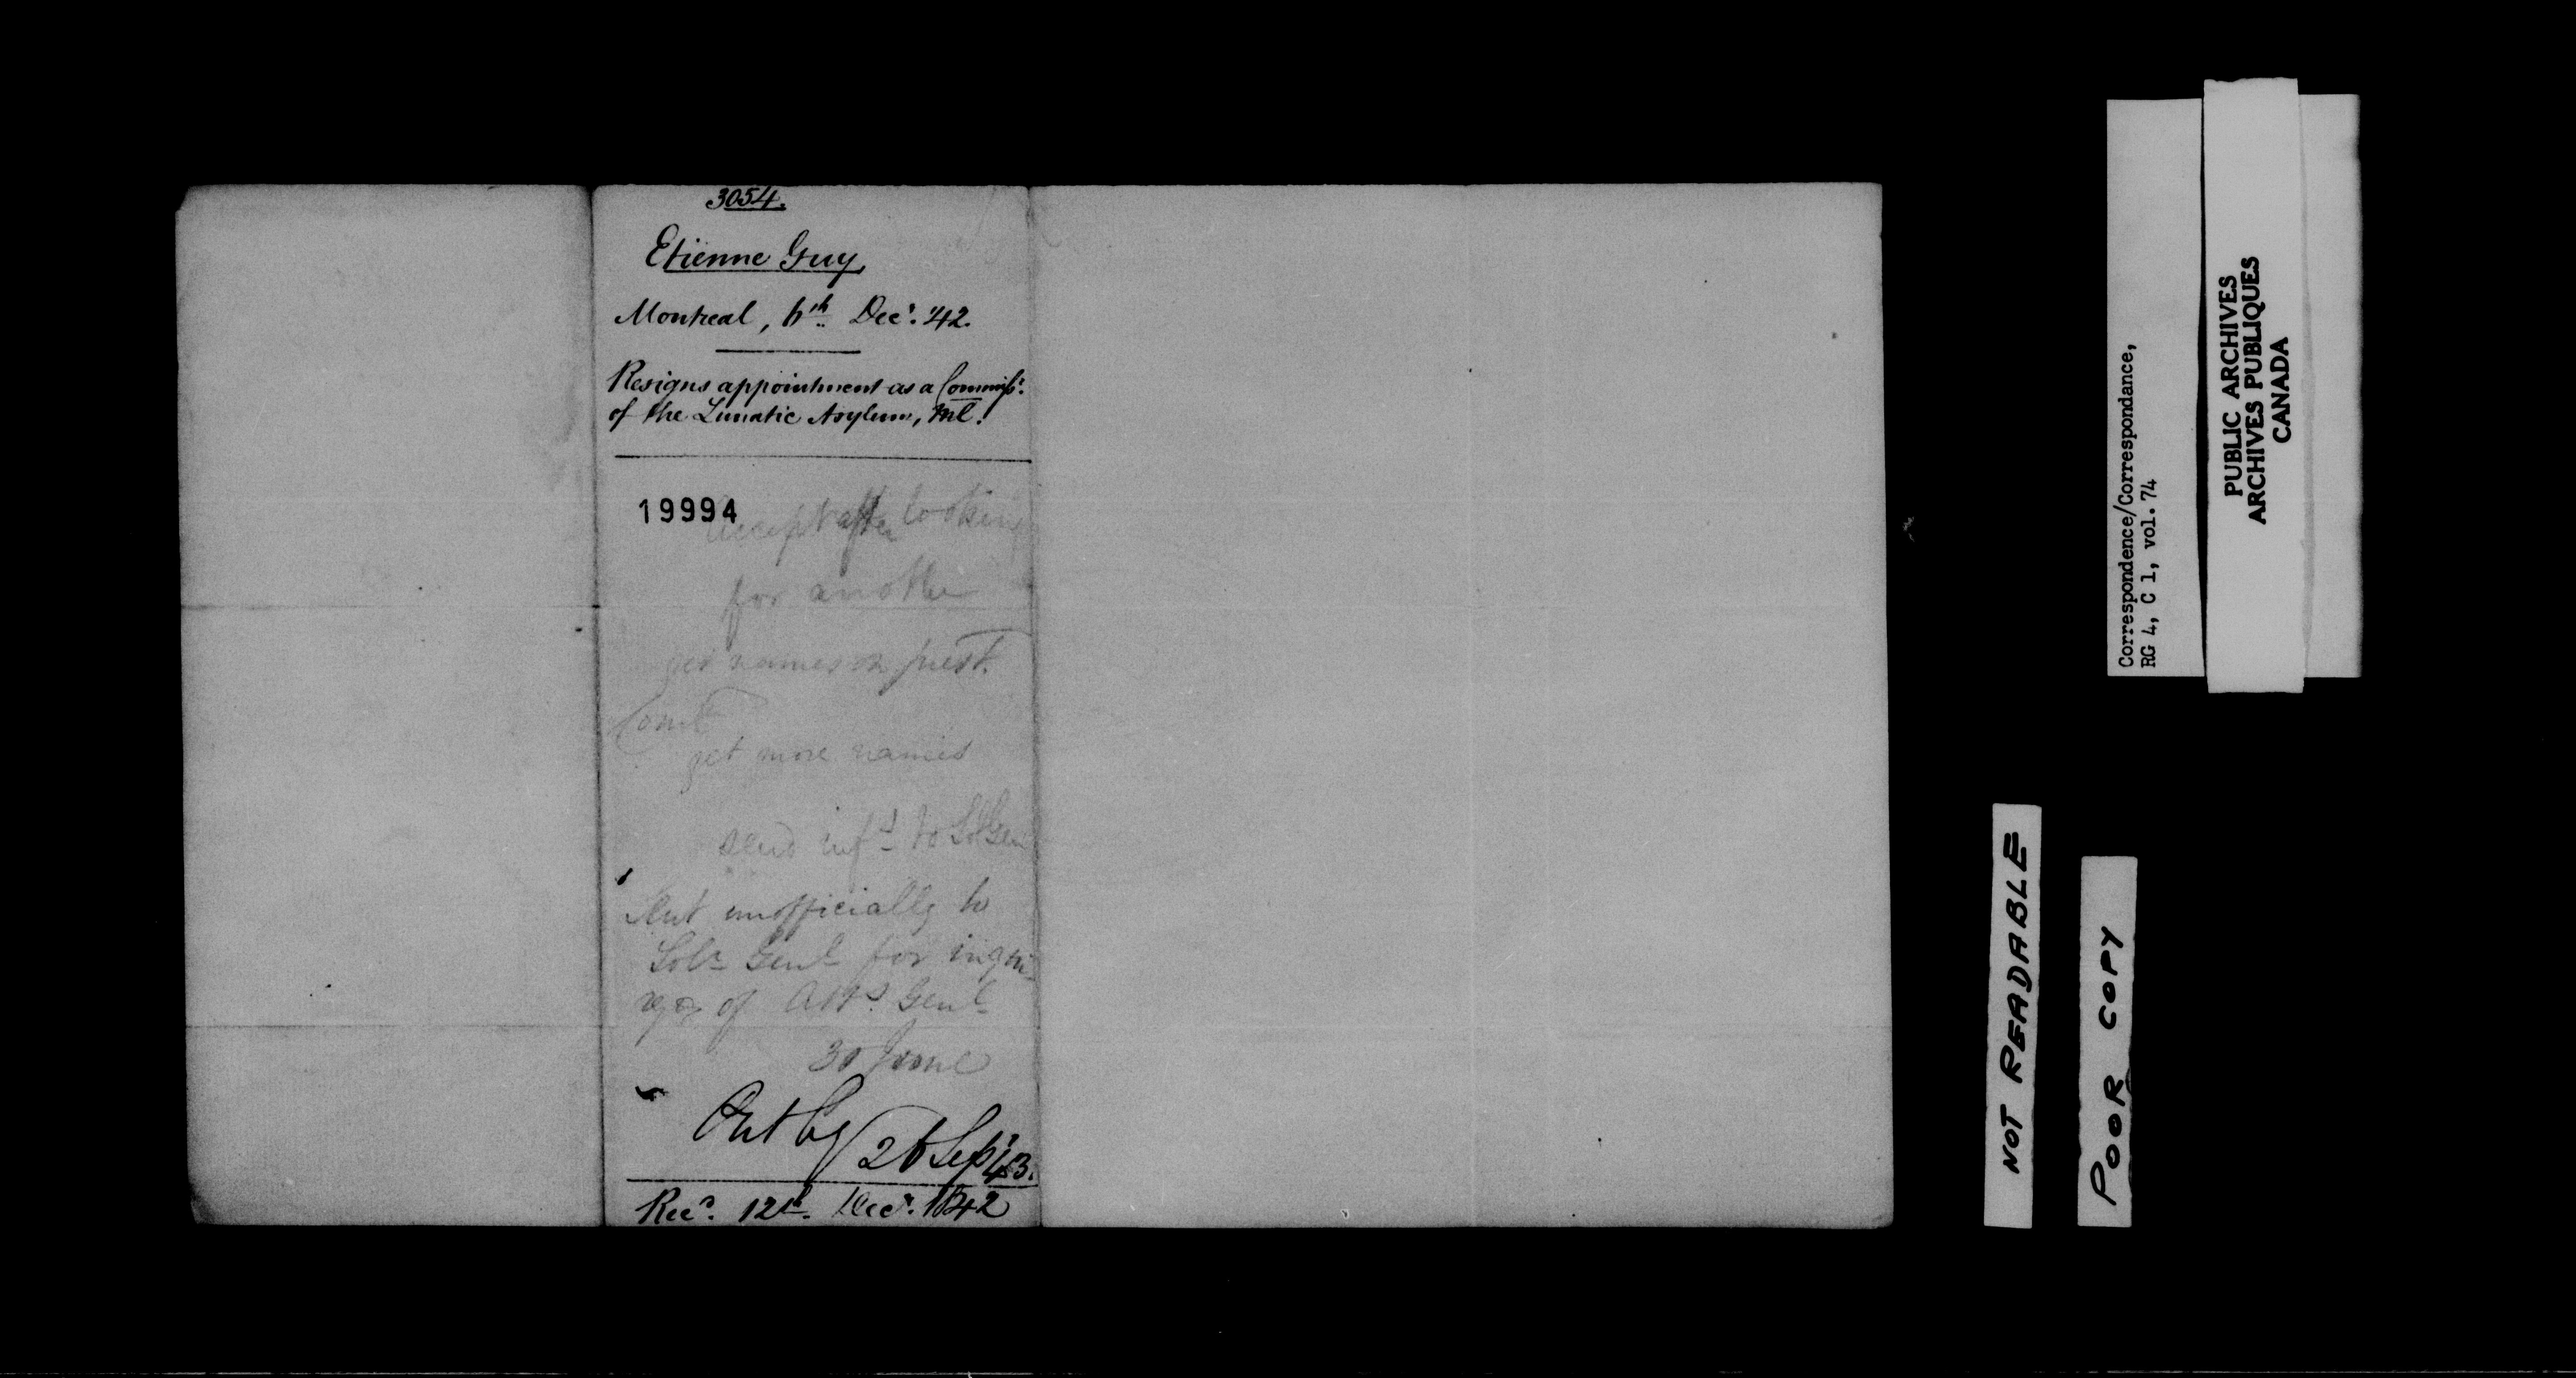 3054.
Etienne Guy
Montreal, 6th Decr. '42.
Resigns appointment as a Commissr.
of the Lunatic Asylum, Ml.
19994
accept after looking
for another
get names in
Comt
get more names
send infd to Sol Gen
Sent unofficially to
Solr Genl for inqui-
ry of Atty Genl
30 June
26 Sept 43.
Recd. 12th. Decr. 1842
Correspondence/Correspondance,
RG 4, C 1, vol. 74
PUBLIC ARCHIVES
ARCHIVES PUBLIQUES
CANADA
NOT READABLE
POOR COPY